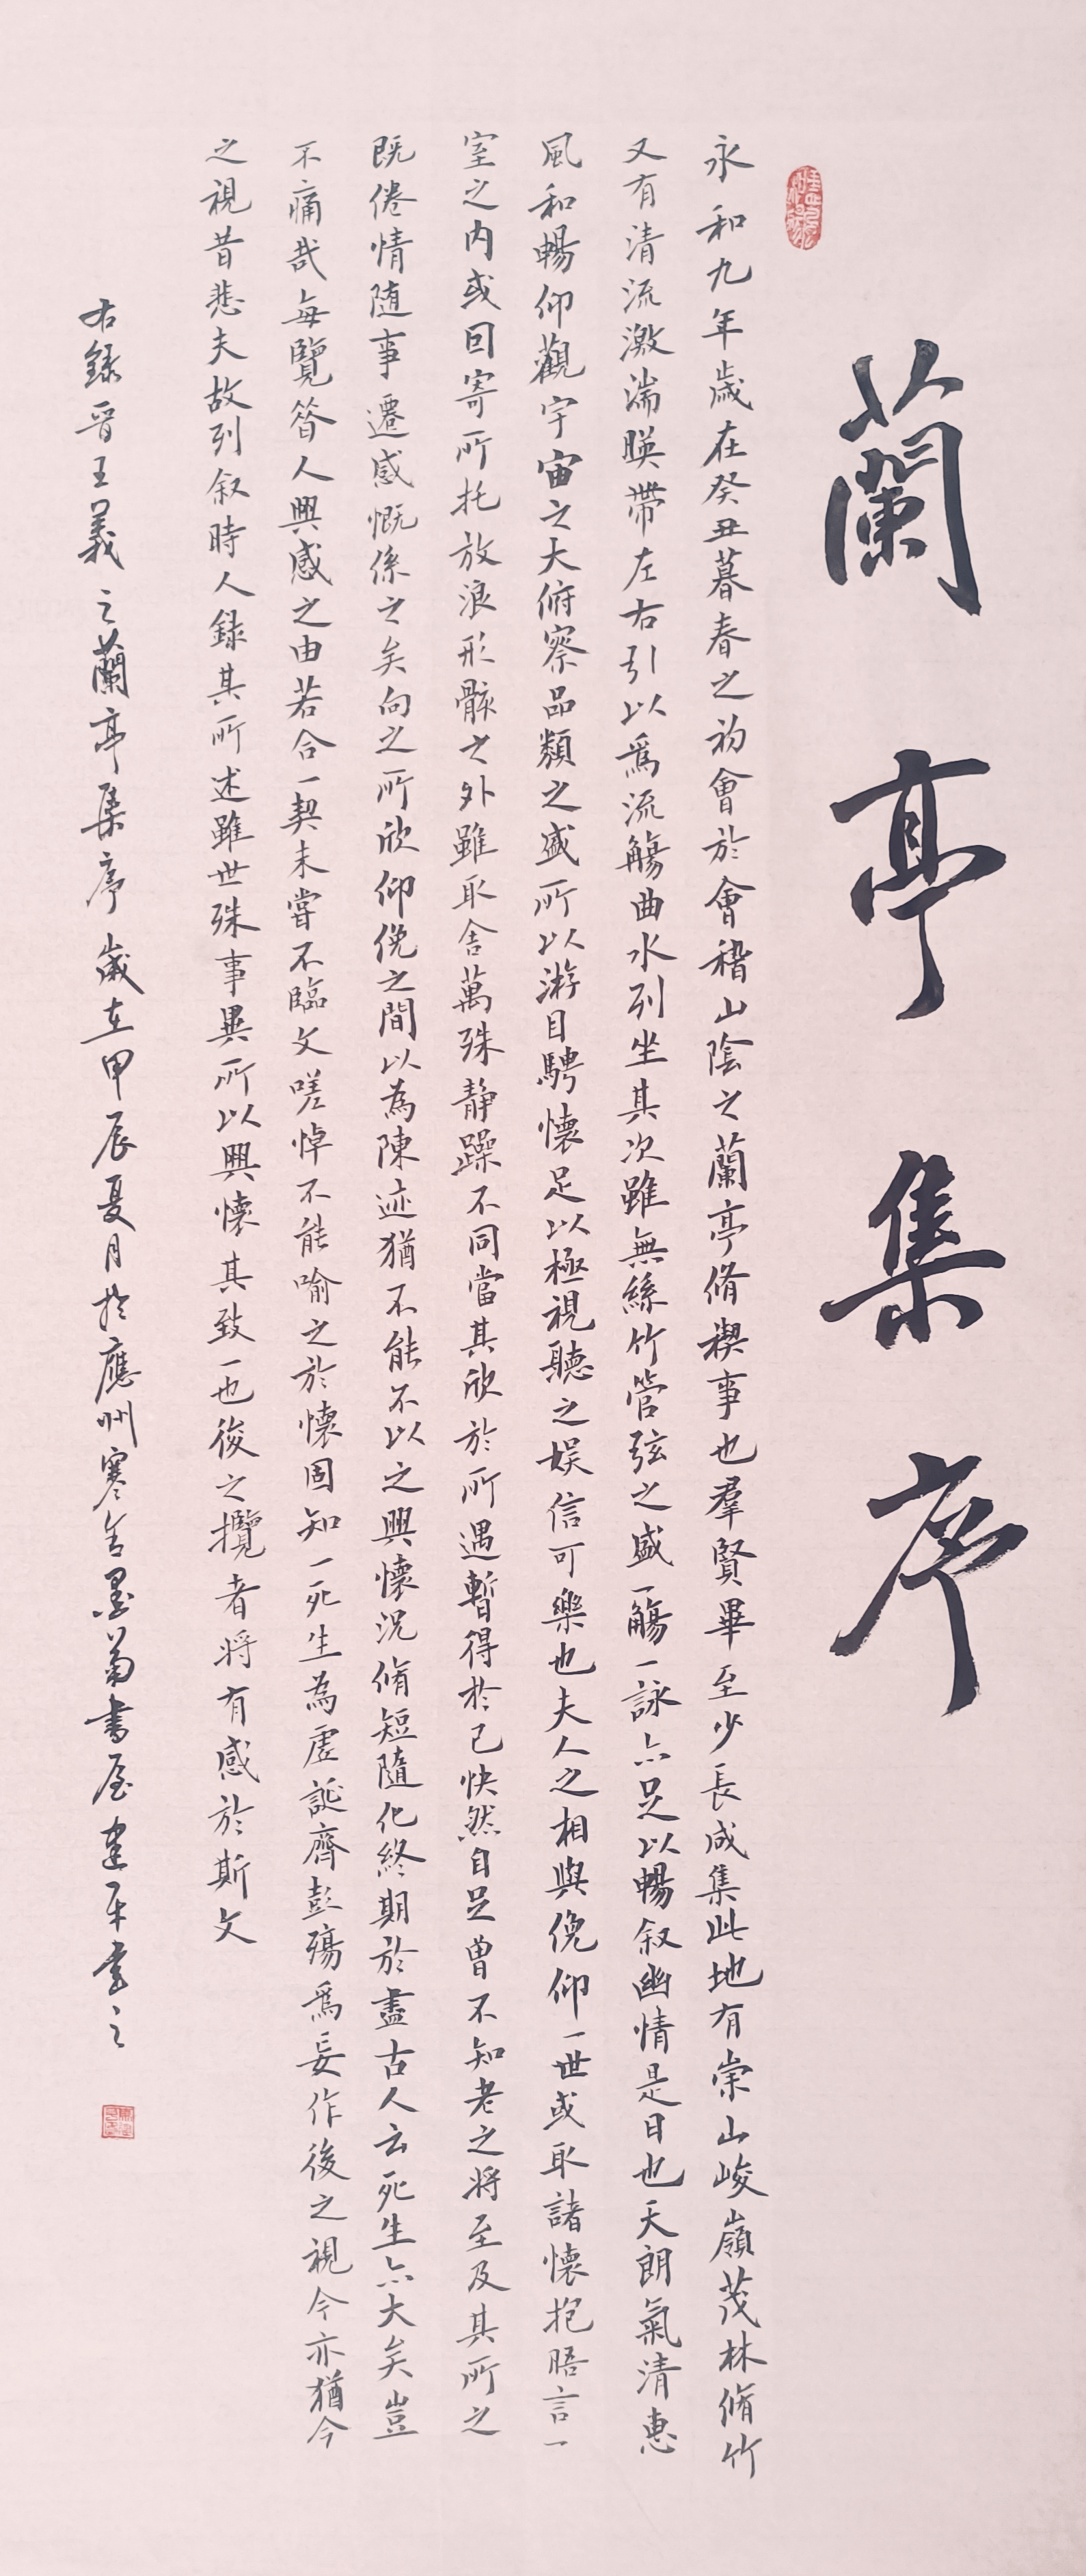 蘭亭集序
永和九年歲在癸丑暮春之初會於會稽山陰之蘭亭脩禊事也羣賢畢至少長咸集此地有崇山峻嶺茂林脩竹
又有清流激湍暎帶左右引以爲流觴曲水列坐其次雖無絲竹管弦之盛一觴一詠亦足以暢叙幽情是日也天朗氣清惠
風和暢仰觀宇宙之大俯察品類之盛所以游目騁懷足以極視聽之娱信可樂也夫人之相與俛仰一世或取諸懷抱晤言一
室之内或回寄所托放浪形骸之外雖取舍萬殊静躁不同當其欣於所遇暫得於己快然自足曾不知老之将至及其所之
既倦情随事遷感慨係之矣向之所欣仰俛之間以為陳迹猶不能不以之興懷況脩短隨化終期於盡古人云死生亦大矣豈
不痛哉每覽昝人興感之由若合一契未嘗不臨文嗟悼不能喻之於懷固知一死生為虚誕齊彭殤爲妄作後之視今亦猶今
之視昔悲夫故列叙時人録其所述雖世殊事異所以興懷其致一也後之攬者将有感於斯文
右録晉王羲之蘭亭集序歲在甲辰夏月於應州寒舍墨菊書屋建平書之